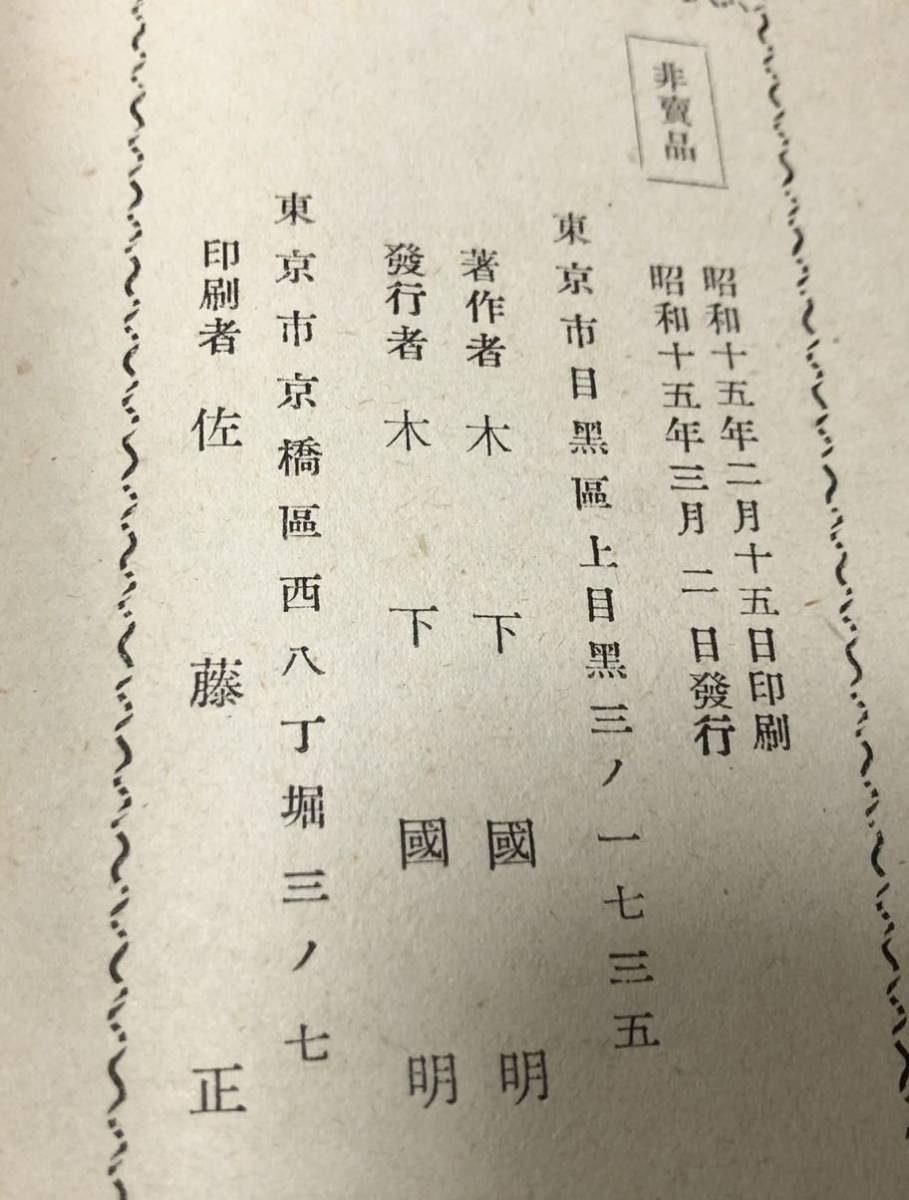 非賣品
昭和十五年二月十五日印刷
昭和十五年三月二日發行
東京市目黑區上目黑三ノ一七三五
著作者 木下國明
發行者 木下國明
東京市京橋區西八丁堀三ノ七
印刷者 佐藤正